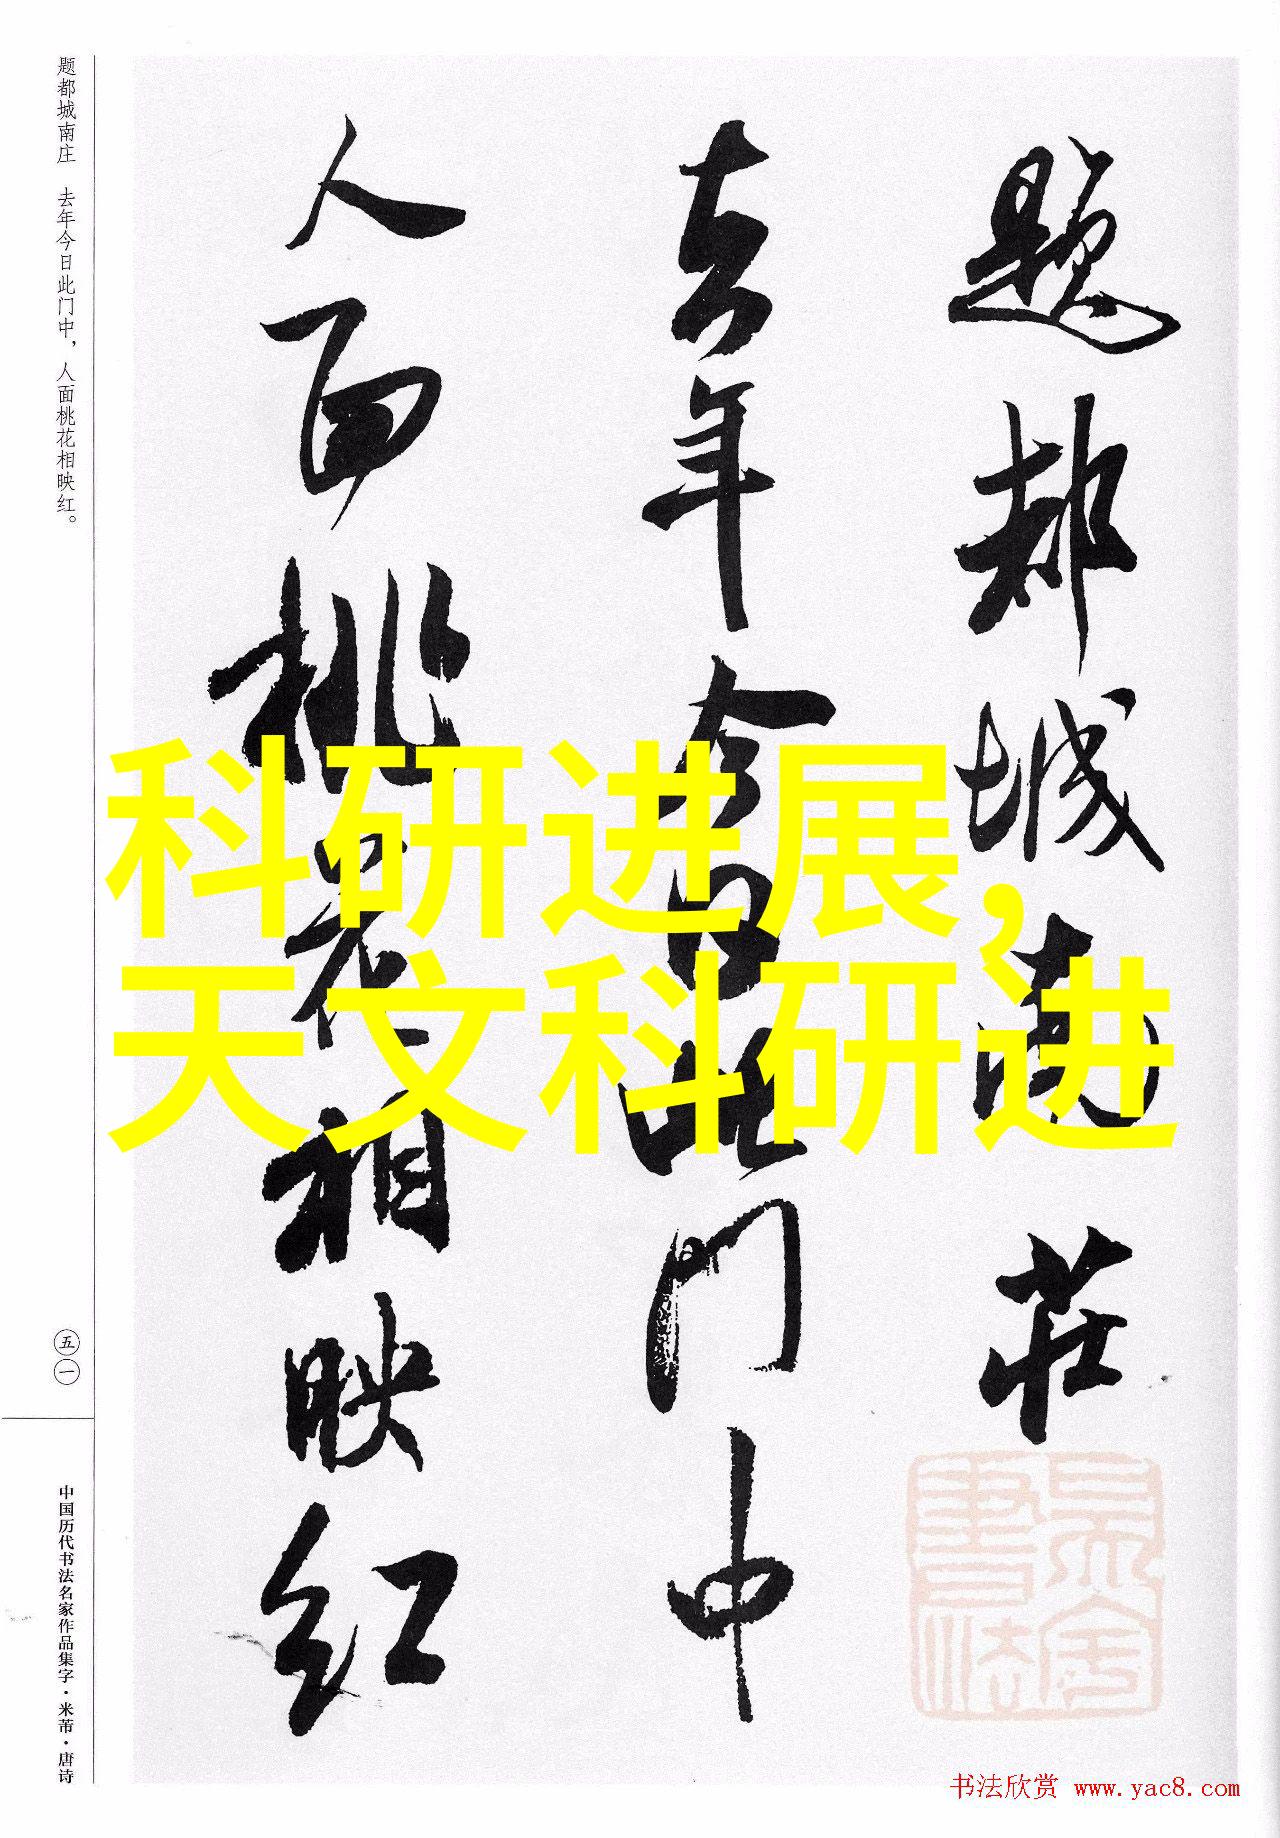 题都城南庄　去年今日此门中，人面桃花相映红。
五一
中国历代书法名家作品集字·米芾·唐诗
题都城南莊
去年今日此门中
人面桃花相映红
科研进展，
天文科研进
吴舍書法
书法欣赏 www.yac8.com